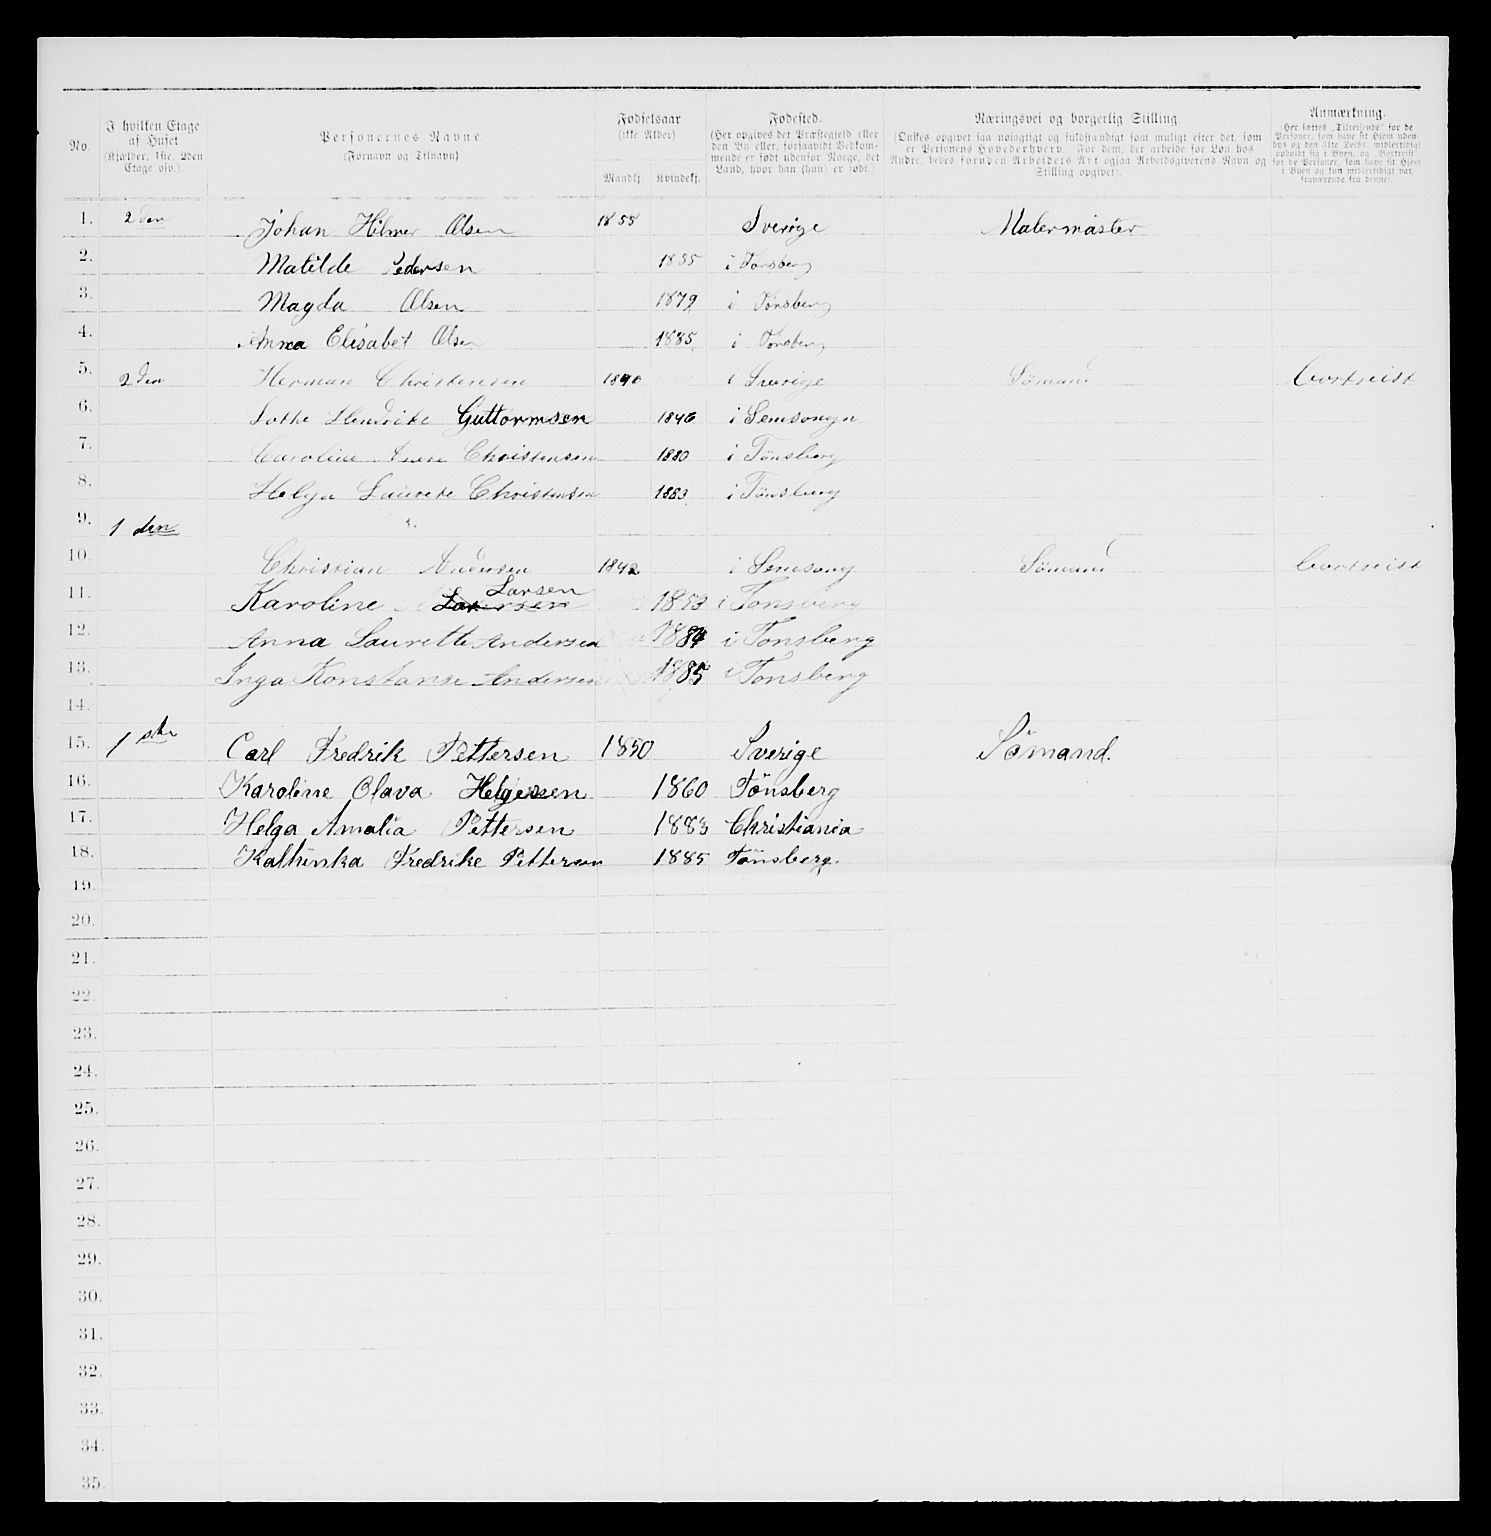 No.
I hvilken Etage af Huset (Kjælder, 1ste, 2den Etage osv.).
Personernes Navne. (Fornavn og Tilnavn)
Fødselsaar (ikke Alder) Mandkj. Kvindekj.
Fødested. (Her opgives det Præstegjeld eller den By eller, forsaavidt Vedkommende er født udenfor Norge, det Land, hvor han (hun) er født.)
Næringsvei og borgerlig Stilling (Ønskes opgivet saa nøiagtigt og fuldstændigt som muligt efter det, som er Personens Hovederhverv. For dem, der arbeide for Løn hos Andre, bedes foruden Arbeidets Art ogsaa Arbeidsgiverens Navn og Stilling opgivet).
Anmærkning. Her sættes „Tilreisende" for de Personer, som have sit Hjem udenbys og den 31te Decbr. midlertidigt opholdt sig i Byen, og „Bortreist" for de Personer, som have sit Hjem i Byen og kun midlertidigt var fraværende fra denne).
1. 2den Johan Hilmer Olsen 1855 Sverige Malermaster
2. Matilde Pedersen 1855 i Tonsberg
3. Magda Olsen 1879 i Tonsberg
4. Anna Elisabet Olsen 1885 i Tonsberg
5. 2den Herman Christensen 1840 i Sverige Sömand bortreist
6. Hendrike Guttormsen 1846 i Semsongn
7. Caroline Anne Christensen 1880 i Tönsberg
8. Helga Laurete Christensen 1883 i Tönsberg
9. 1 den
10. Christian Andersen 1842 i Semsong Sömand bortreist
11. Karoline Larsen 1853 i Tonsberg
12. Anna Laurette Andersen 1884 i Tonsberg
13. Inga Konstanse Andersen 1885 i Tonsberg
14.
15. 1 ste Carl Fredrik Pettersen 1850 Sverige Sömand.
16. Karoline Olava Helgesen 1860 Tönsberg
17. Helga Amalia Pettersen 1883 Christiania
18. Kathinka Fredrike Pettersen 1885 Tönsberg.
19.
20.
21.
22.
23.
24.
25.
26.
27.
28.
29.
30.
31.
32.
33.
34.
35.